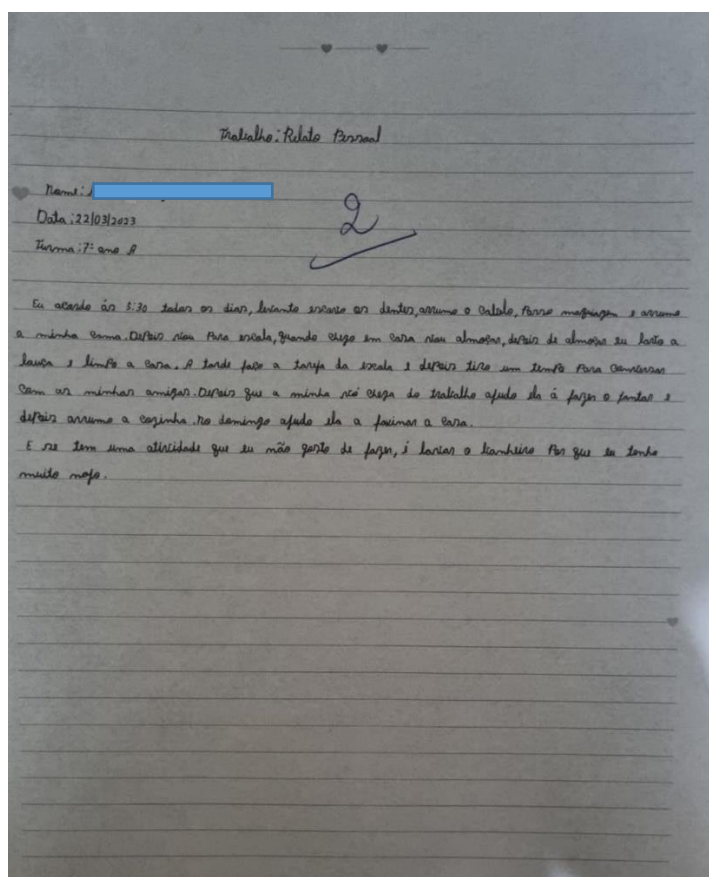 Trabalho: Relato Pessoal
Nome:
Data: 22/03/2023
2
Turma: 7º ano A
Eu acordo ás 5:30 todos os dias, levanto escovo os dentes, arrumo o cabelo, Passo maquiagem e arrumo
a minha cama. Depois vou Para escola, quando chego em casa vou almoçar, depois de almoçar eu lavo a
louça e limpo a casa. A tarde faço a tarefa da escola e depois tiro um tempo Para conversar
com as minhas amigas. Depois que a minha vó chega do trabalho ajudo ela á fazer o jantar e
depois arrumo a cozinha. no domingo ajudo ela a faxinar a casa.
E se tem uma atividade que eu não gosto de fazer, é lavar o banheiro Por que eu tenho
muito nojo.